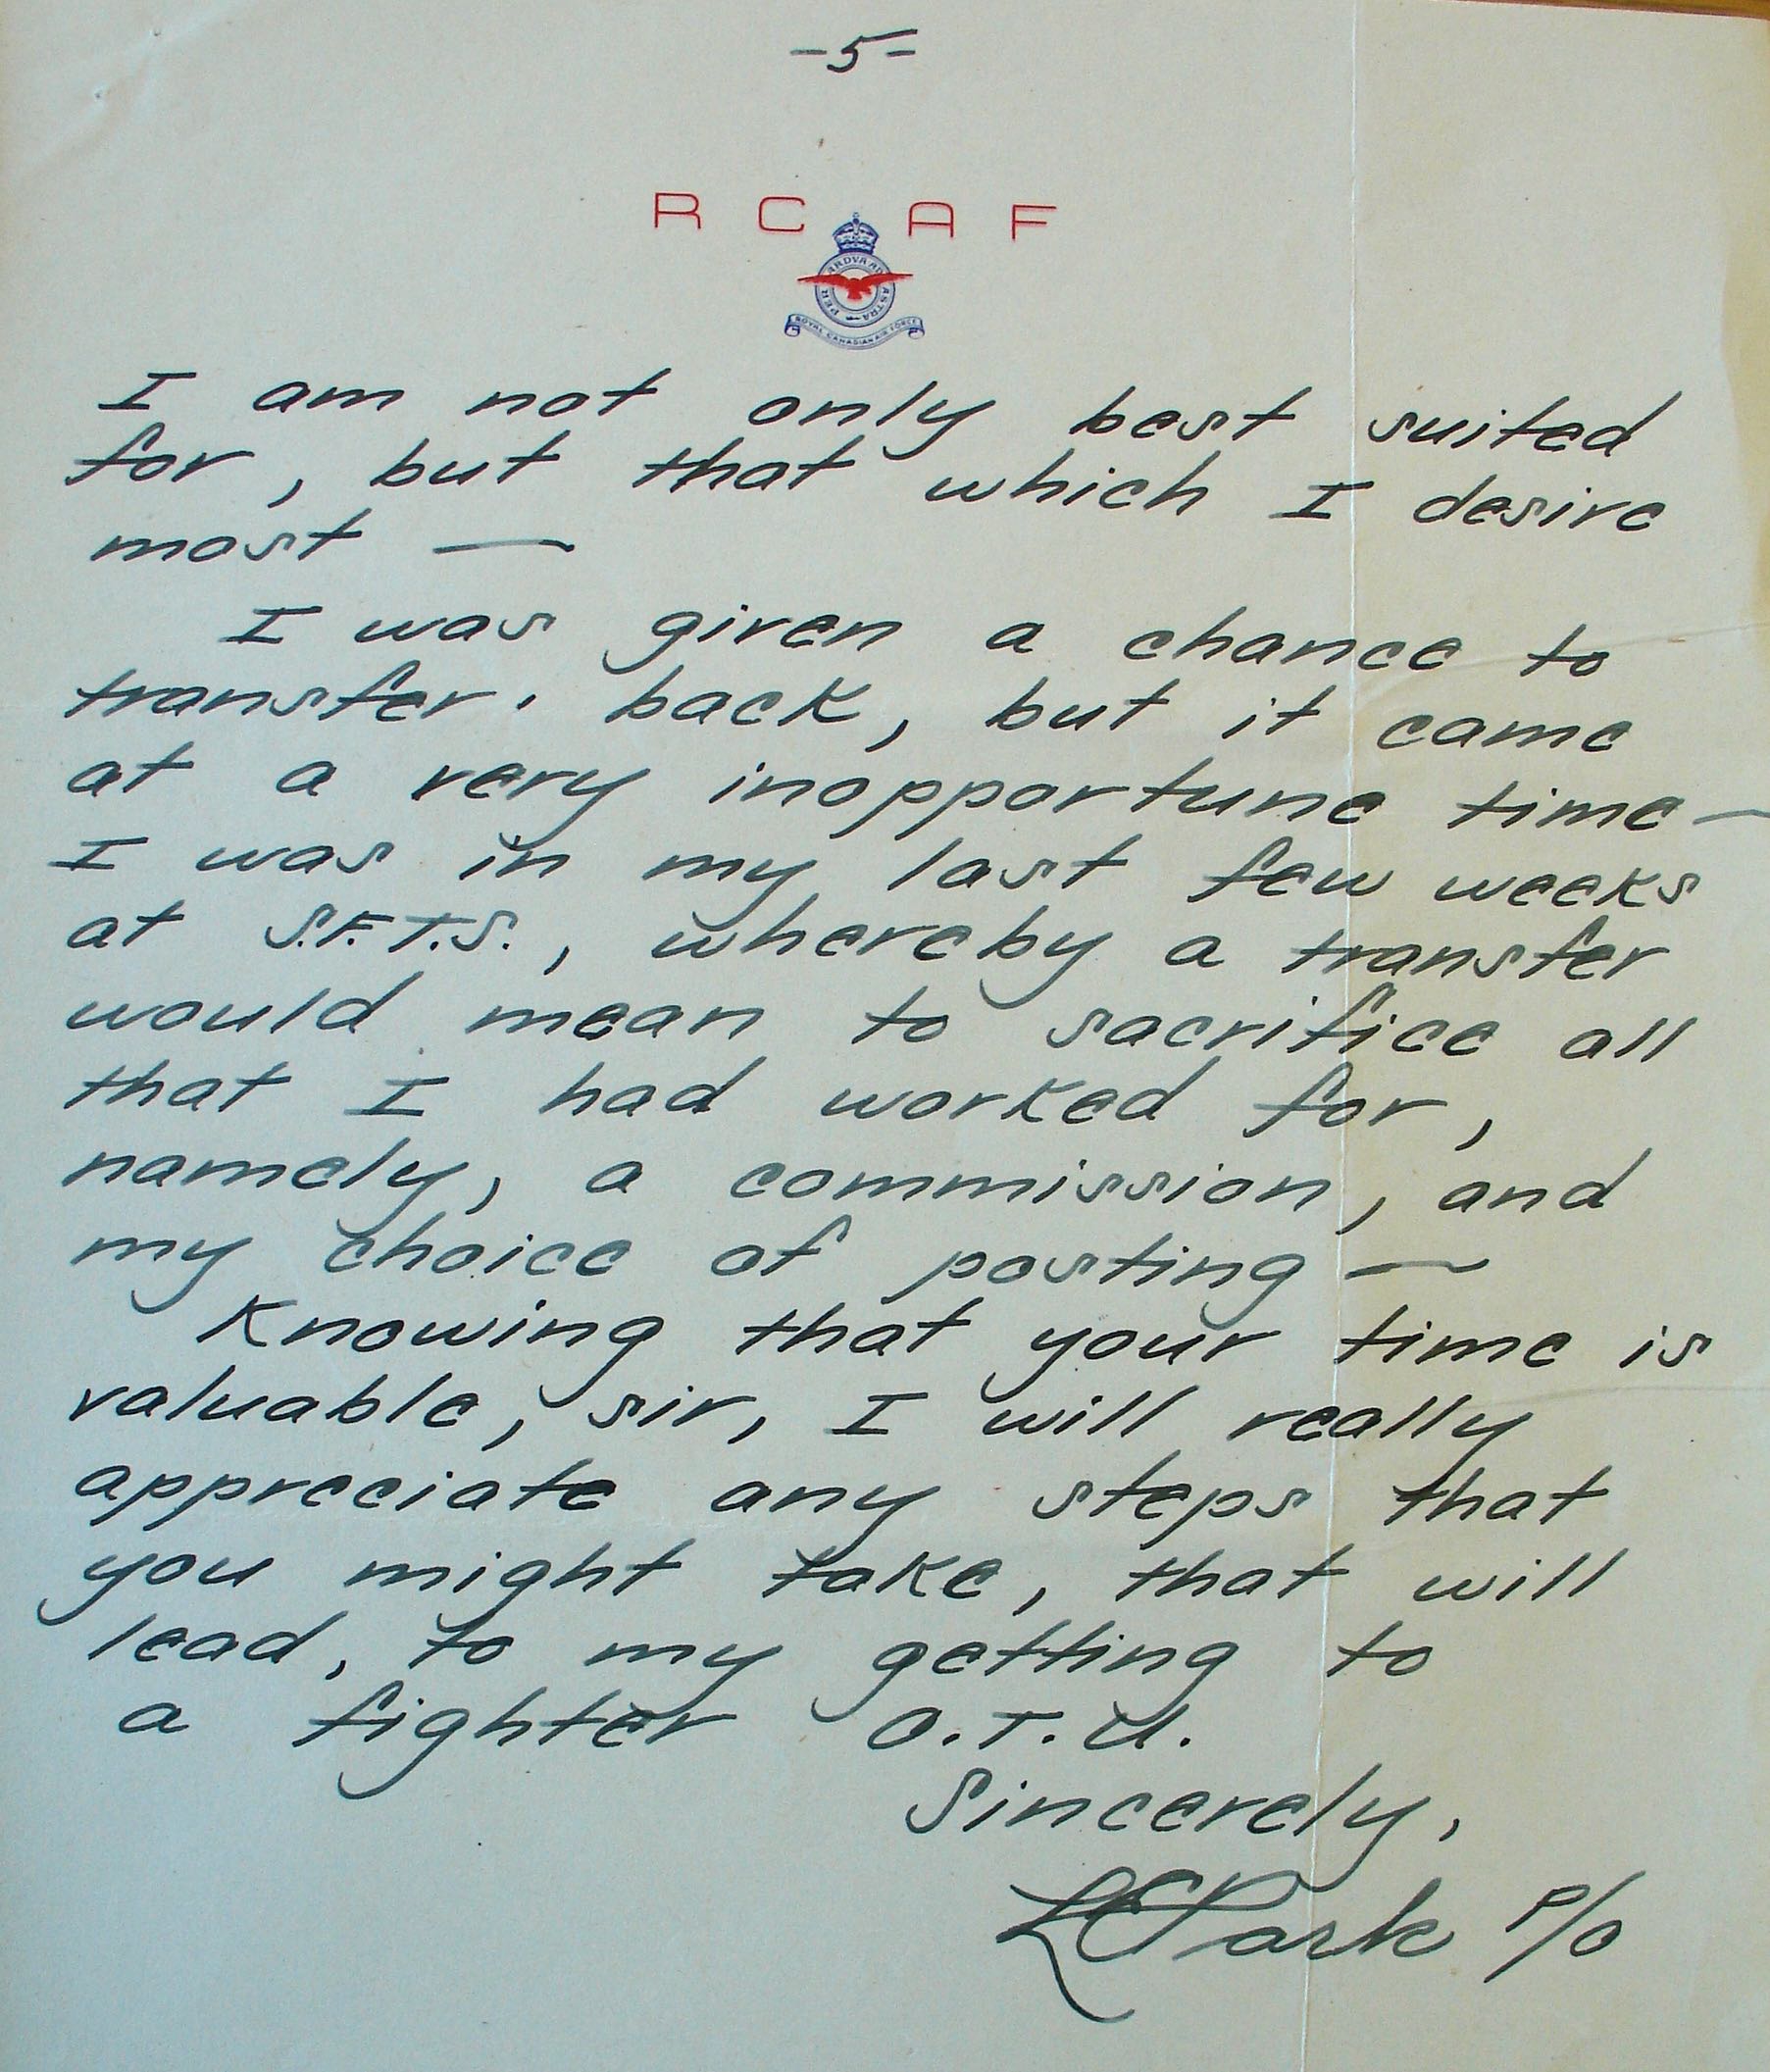 -5-
R C A F
PER ARDVA AD ASTRA
ROYAL CANADIAN AIR FORCE
I am not only best suited
for, but that which I desire
most —
I was given a chance to
transfer. back, but it came
at a very inopportune time—
I was in my last few weeks
at S.F.T.S., whereby a transfer
would mean to sacrifice all
that I had worked for,
namely, a commission, and
my choice of posting —
Knowing that your time is
valuable, sir, I will really
appreciate any steps that
you might take, that will
lead, to my getting to
a fighter O.T.U.
Sincerely,
LEPark P/O